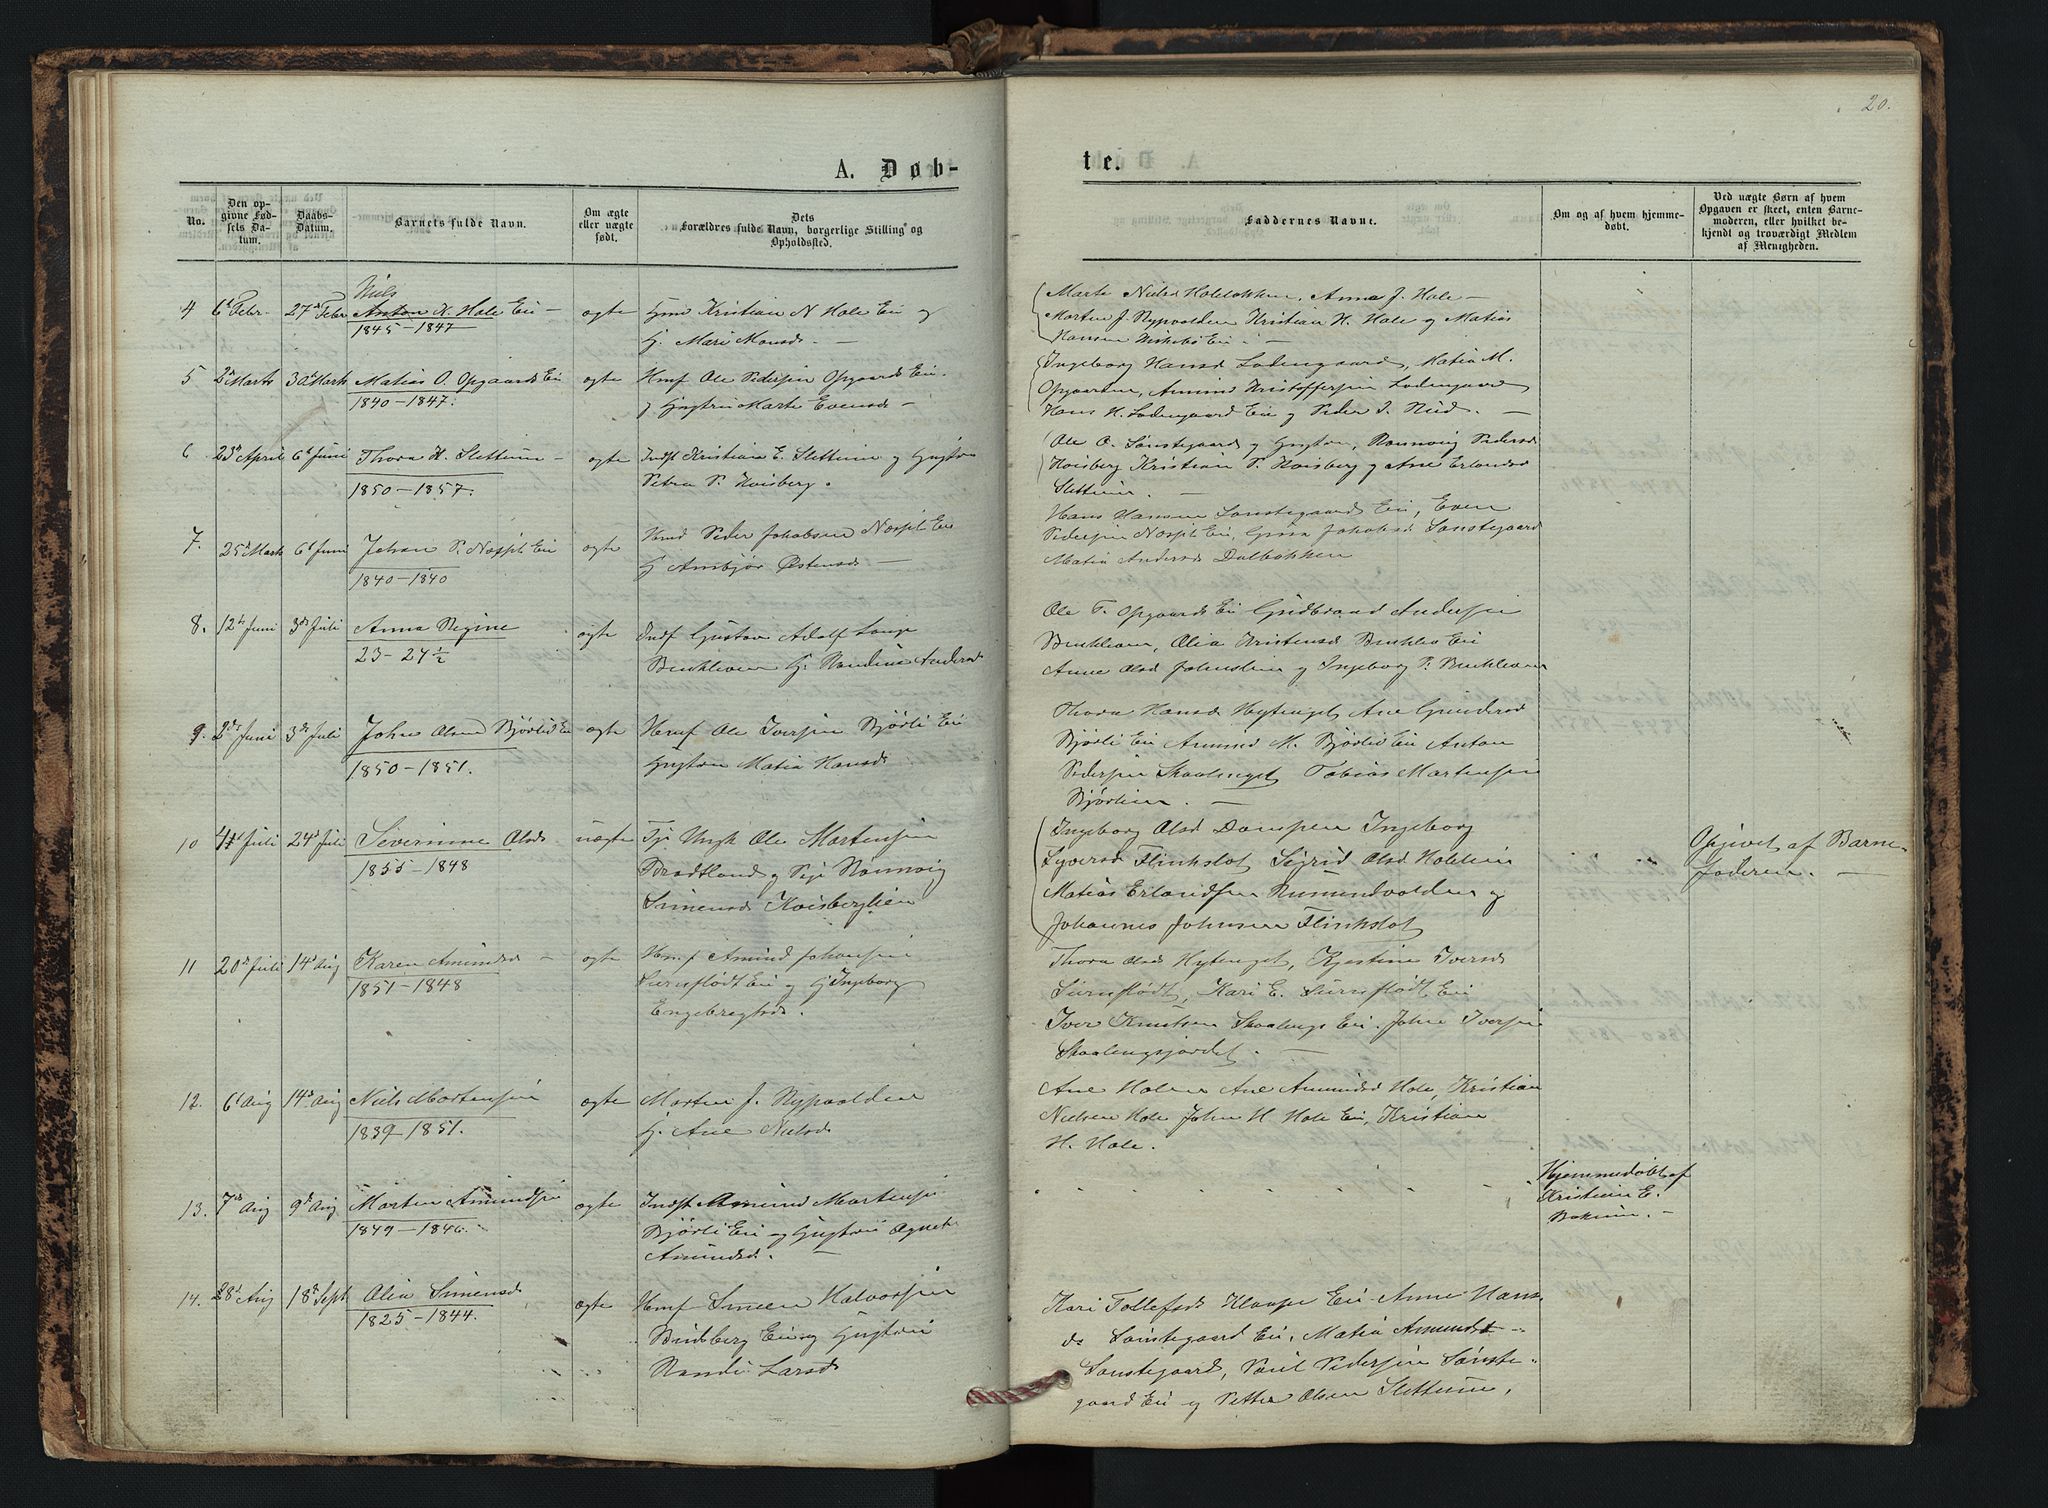 20.
A. Døb-
te.
No.
Den op-
givne Fød-
sels Da-
tum.
Daabs-
Datum.
Barnets fulde Navn.
Om ægte
eller uægte
født.
Dets
Forældres fulde Navn, borgerlige Stilling og
Opholdssted.
Faddernes Navne.
Om og af hvem hjemme-
døbt.
Ved uægte Børn af hvem
Opgaven er skeet, enten Barne-
moderen, eller hvilket be-
kjendt og troværdigt Medlem
af Menigheden.
4 6t Febr. 27d Febr
Niels
Anton K. Hole Ei -
1845 - 1847
ægte
Hmd Kristian N Hole Ei og
H. Mari Monsd. -
Marte Nielsd Holelokken. Anne J. Hole -
Morten J. Rypvolden Kristian H. Hole og Matias
Hansen Ei -
5 2d Marts 30d Marts
Matias O. Opgaards Ei
1840 - 1847.
ægte
Hmf Ole Pedersen Opgaards Ei.
og Hustru Marte Evensd -
Ingeborg Hansd Lodengaard, Matia M.
Opgaarden, Amund Kristoffersen Lodengaard
Hans H. Lodengaard Ei og Peder J. Rud. -
6 23d April 6t Juni
Thora K. Slettum -
1850 - 1857.
ægte
Indst Kristian E. Slettum og Hustru
Petra P. Hoisberg.
Ole O. Sønstegaard og Hustru, Rønnvig Pedersd
Hoisberg Kristian P. Hoisberg og Ane Erlandsd
Slettum. -
7. 25d Marts 6t Juni
Johan P. Næsset Ei
1840 - 1840
ægte
Hmd Peder Jakobsen Næsset Ei
H Ambjør Østensd -
Hans Hansen Sønstegaard Ei, Even
Pedersen Næsset Ei, Jakobsd Sønstegaard
Matia Andersd Dalbakken
8. 12te Juni 3de Juli
Anna Regine
23 - 24½
ægte
Indf Gustav Adolf Lange
H. Randine Andersd
Ole T. Opgaards Ei Gudbrand Andersen
Olia Kristensd Ei
Anne Olsd og Ingeborg P.
9. 2de Juni 3de Juli
John Olsen Bjørlid Ei
1850 - 1851.
ægte
Hmf Ole Iversen Bjørli Ei
Hustru Matia Hansd
Thora Hansd Hytenget Ane Gundersd
Bjørli Ei Amund M. Bjørlid Ei Anton
Pedersen Skaalenget Tobias Martensen
Bjørlien. -
10 4de Juli 24d Juli
Severinne Olsd
1855 - 1848
uægte
Tj. Ungk Ole Mortensen
Brodtland og Pige Rønnvig
Simensd Koisberglien
Ingeborg Olsd Ingeborg
Syversd Flinkslot Sigrid Olsd Holslien
Matias Erlandsen og
Johannes Johnsen Flinkslot
Opgivet af Barne-
faderen. -
11 20de Juli 14d Aug
Karen Amundsd -
1851 - 1848
ægte
Hmf Amund Johansen
Surnflødt Ei og H Ingeborg
Engebregtsd.
Thora Olsd Hytenget, Kjestine Iversd
Surnflødt, Kari E. Surnflødt Ei
Iver Knutsen Skaalengs Ei. John Iversen
Skaalengsjordet. -
12. 6t Aug 14d Aug
Niels Mortensen
1839 - 1851.
ægte
Morten J. Rypvolden
H. Ane Nielsd
Ane Holen Ane Amundsd Hole, Kristian
Nielsen Hole John H Hole Ei, Kristian
H. Hole.
13. 7de Aug 9d Aug
Morten Amundsen
1849 - 1846.
ægte
Indst Amund Mortensen
Bjørli Ei og Hustru Agnet
Amundsd. -
Hjemmedøbt af
Kristian E.
14. 28d Aug 18d Sept
Olia Simensd
1825 - 1844.
ægte
Hmf Simen Halvorsen
Ei og Hustru
Randi Larsd
Kari Tollefsd Ei Anne Hans
ds Sønstegaard Ei, Matia Amundsd -
Sønstegaard, Poul Pedersen Sønste-
gaard Ei og Petter Olsen Slettum.